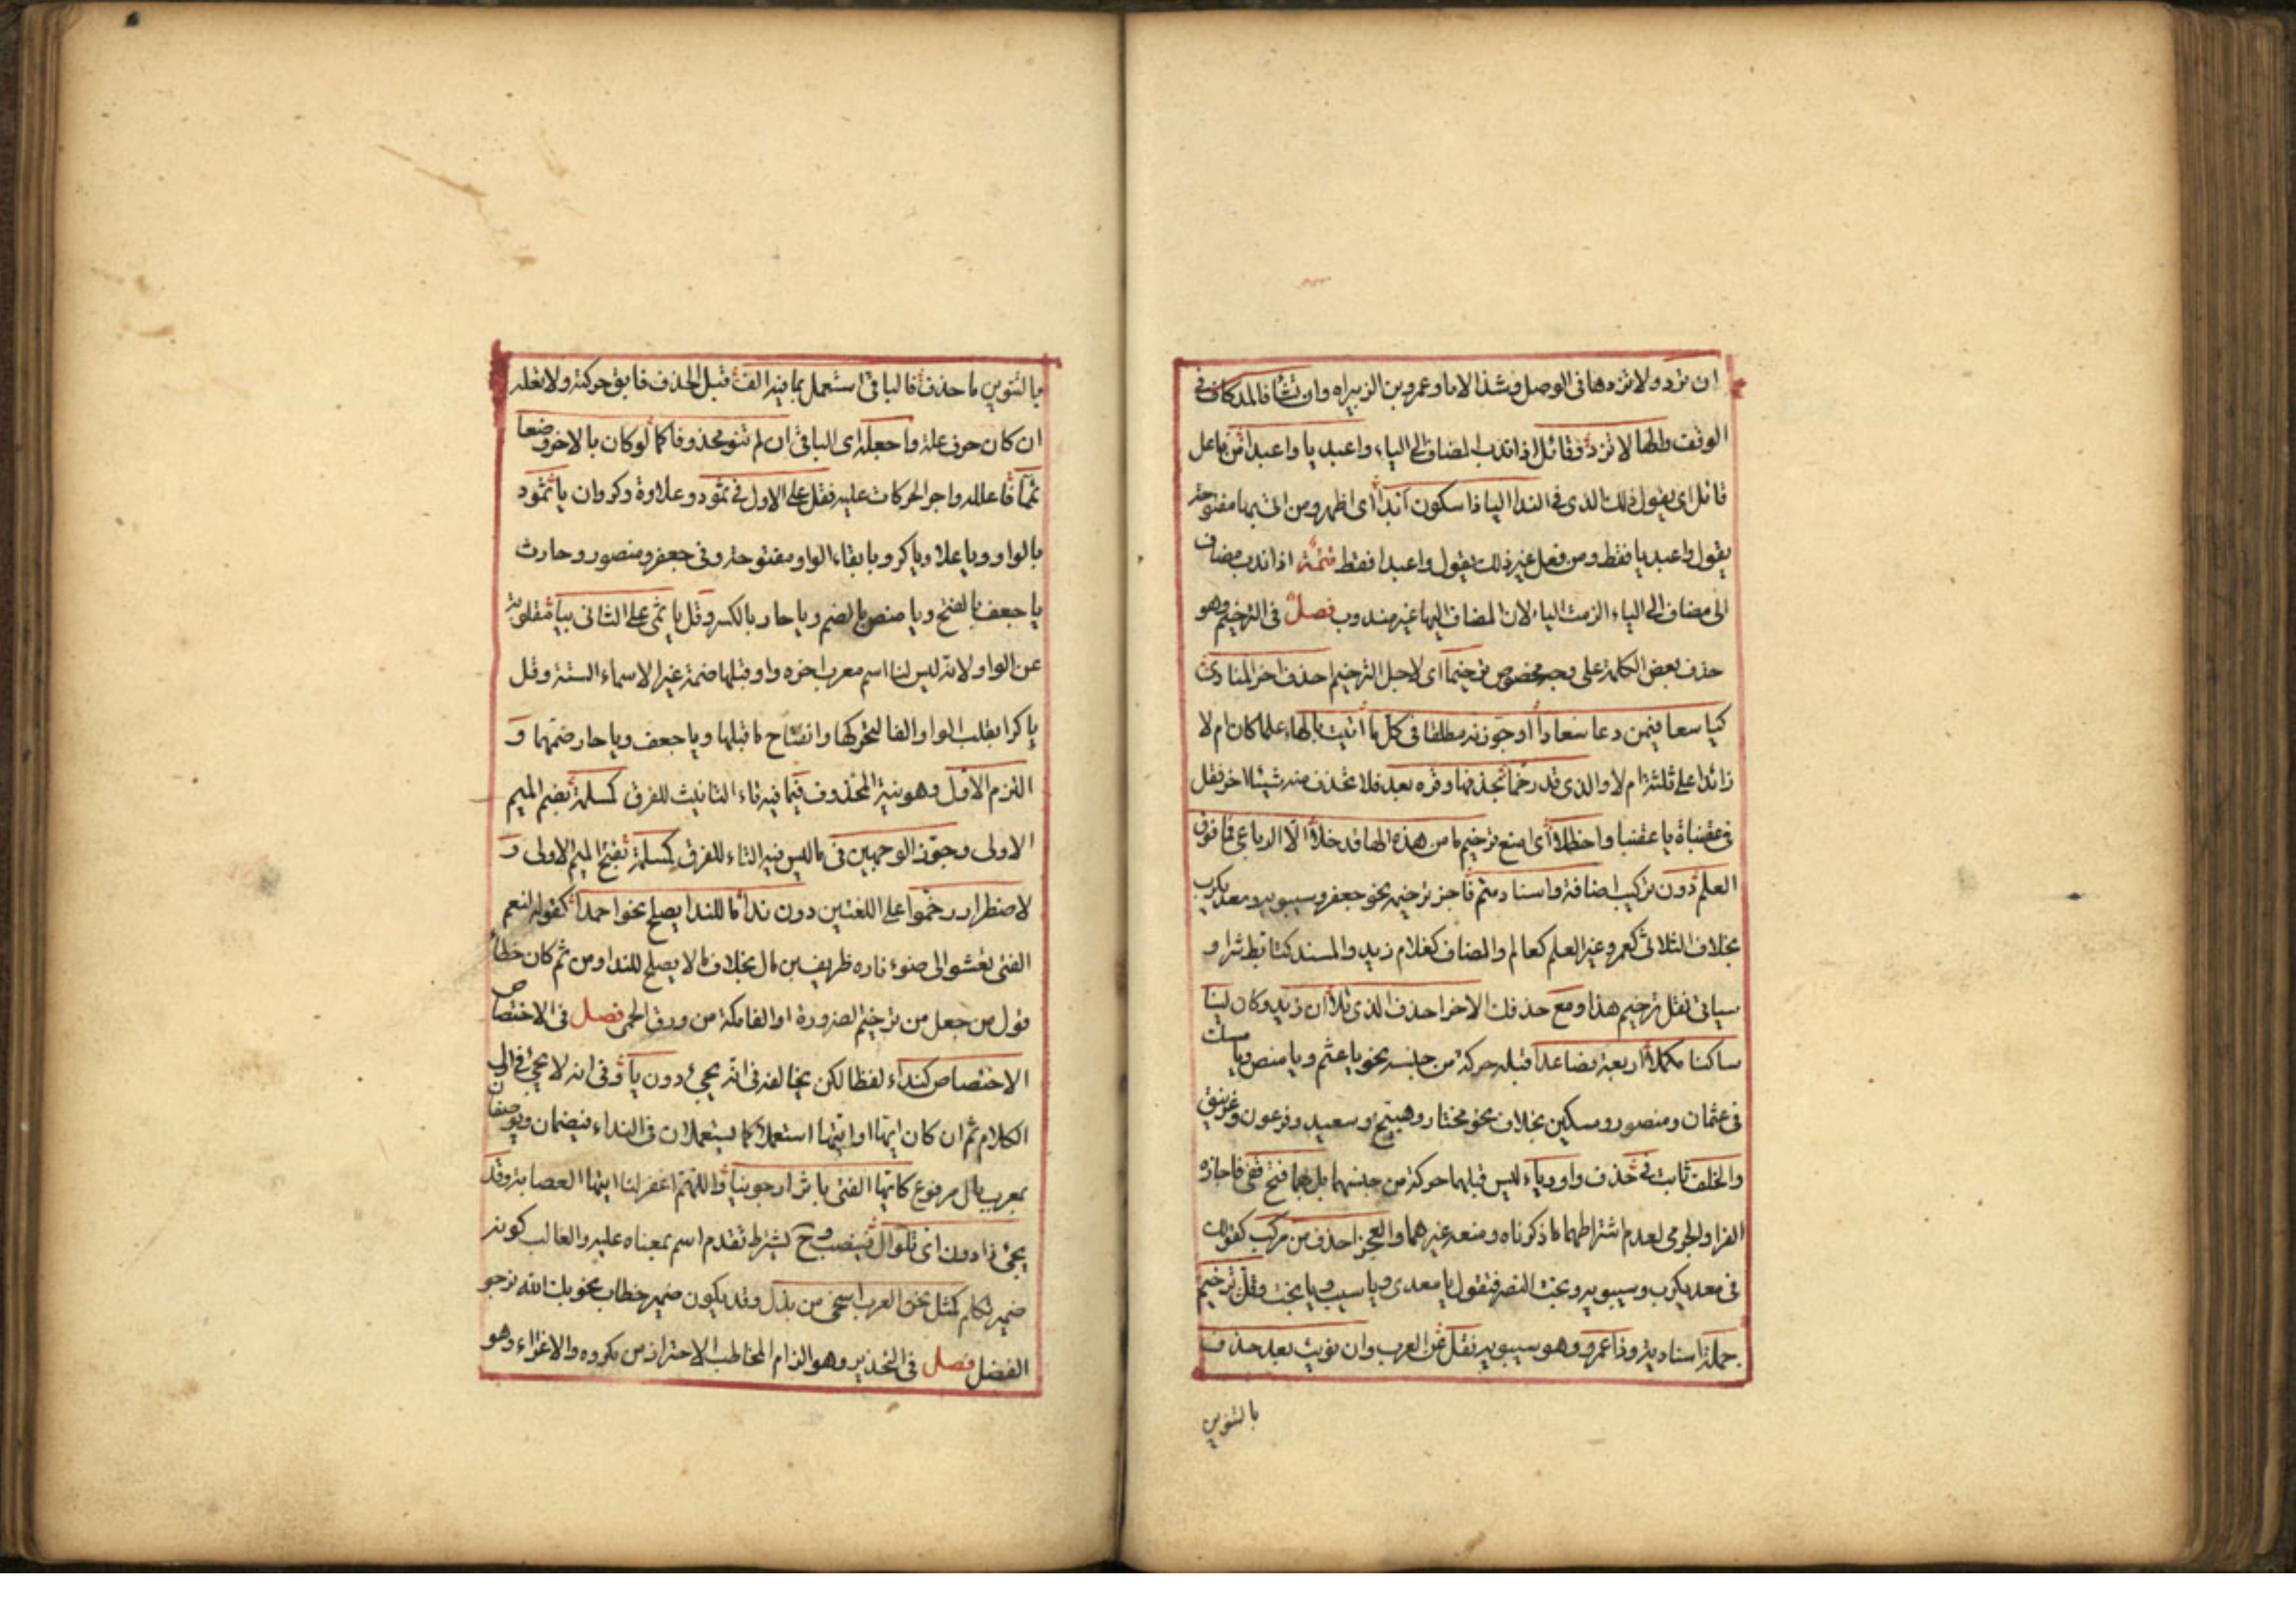 ان تزد ولا تزدها في الوصل وشذ الاما وعمرو بن الزبيراه وان تشا فالمد كاف في
الوقف والها لا تزد وقائل اذا ندب المضاف الى الياء واعبديا واعبدا من فاعل
قائل اي يقول ذلك الذي في الندا اليا ذا سكون ابدا اي اظهر ومن اتى بها مفتوحة
يقول واعبديا فقط ومن فعل غير ذلك يقول واعبدا فقط تتمة اذا ندب مضاف
الى مضاف الى الياء الزمت الياء لان المضاف اليها غير مندوب فصل في الترخيم وهو
حذف بعض الكلمة على وجه مخصوص ترخيما اي لاجل الترخيم احذف اخر المنادى
كيا سعا فيمن دعا سعادا وجوزنه مطلقا في كل ما انث بالهاء علما كان ام لا
زائدا على ثلثة ام لا والذي قد رخما بحذفها وفره بعد فلا تحذف منه شيئا اخر فقل
في عقنباة يا عقنبا واحظلا اي امنع ترخيم ما من هذه الها قد خلا الا الرباعي فما فوق
العلم دون تركيب اضافة واسناد متم فاجز ترخيمه نحو جعفر وسيبويه ومعديكرب
بخلاف الثلاثي كعمر وغير العلم كعالم والمضاف كغلام زيد والمسند كتابط شرا و
سياتي نقل ترخيم هذا ومع حذفك الاخر احذف الذي تلا ان زيد وكان لينا
ساكنا مكملا اربعة فصاعدا قبله حركة من جنسه نحو يا عثم ويا منص ويا مسك
في عثمان ومنصور ومسكين بخلاف نحو مختار وهبيخ وسعيد وفرعون وغرنيق
والخلف ثابت في حذف واو وياء ليس قبلهما حركة من جنسهما بل بهما فتح قفي فاجازه
الفرا والجرمي لعدم اشتراطهما ما ذكرناه ومنعه غيرهما والعجز احذف من مركب كقولك
في معديكرب وسيبويه وبخت النصر فتقول يا معدي ويا سيب ويا بخت وقل ترخيم
جملة اسنادية وذا عمرو وهو سيبويه نقل عن العرب وان نويت بعد حذف
بالتنوين
بالتنوين ما حذف فالباقي استعمل بما فيه الف قبل الحذف فابق حركته ولا تعله
ان كان حرف علة واجعله اي الباقي ان لم تنو محذوفا كما لو كان بالاخر وضعا
تمما فاعله واجر الحركات عليه فقل على الاول في ثمود وعلاوة وكروان يا ثمو د
بالواو ويا علا ويا كرو بابقاء الواو مفتوحة وفي جعفر ومنصور وحارث
يا جعف بالفتح ويا منص بالضم ويا حار بالكسر وقل يا ثمي على الثاني بيا مقلوبة
عن الواو لانه ليس لنا اسم معرب اخره واو وقبلها ضمة غير الاسماء الستة وقل
يا كرا بقلب الواو الفا لتحركها وانفتاح ما قبلها ويا جعف ويا حار بضمهما و
التزم الاول وهو نية المحذوف فيما فيه تاء التانيث للفرق كمسلمة بضم الميم
الاولى وجوز الوجهين في ما ليس فيه التاء للفرق كمسلمة بفتح الميم الاولى و
لاضطرار رخموا على اللغتين دون ندا ما للندا يصلح نحو احمدا كقوله لنعم
الفتى تعشو الى ضوء ناره طريف بن مال بخلاف ما لا يصلح للندا ومن ثم كان خطأ
قول من جعل من ترخيم الضرورة اوالفا مكة من ورق الحمي فصل في الاختصاص
الاختصاص كنداء لفظا لكن يخالفه في انه يجيء دون يا وفي انه لا يجيء في اول
الكلام ثم ان كان ايها او ايتها استعملا كما يستعملان في النداء فيضمان ويوصفان
بمعرب بال مرفوع كايها الفتى باثر ارجونيا واللهم اغفر لنا ايتها العصابة وقد
يجيء ذا دون اي تلو ال فينصب وح يشترط تقدم اسم بمعناه عليه والغالب كونه
ضمير تكلم كمثل نحن العرب اسخى من بذل وقد يكون ضمير خطاب نحو بك الله نرجو
الفضل فصل في التحذير وهو الزام المخاطب الاحتراز من مكروه والاغراء وهو